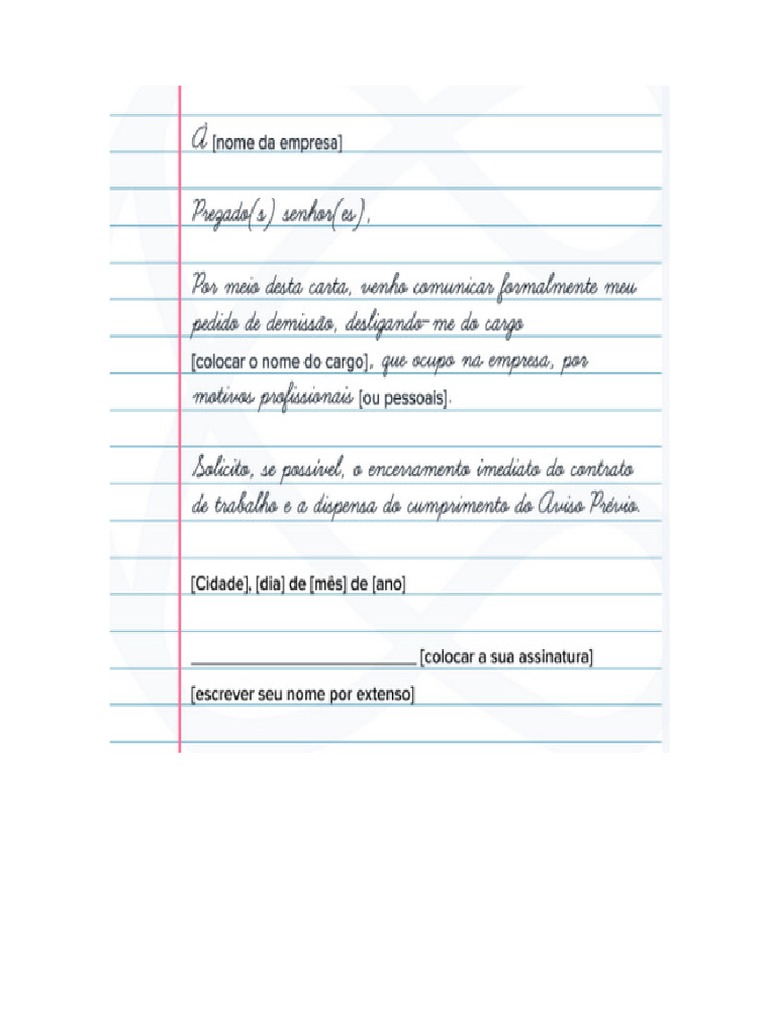 À [nome da empresa]
Prezado(s) senhor(es),
Por meio desta carta, venho comunicar formalmente meu
pedido de demissão, desligando-me do cargo
[colocar o nome do cargo], que ocupo na empresa, por
motivos profissionais [ou pessoais].
Solicito, se possível, o encerramento imediato do contrato
de trabalho e a dispensa do cumprimento do Aviso Prévio.
[Cidade], [dia] de [mês] de [ano]
_________________________ [colocar a sua assinatura]
[escrever seu nome por extenso]